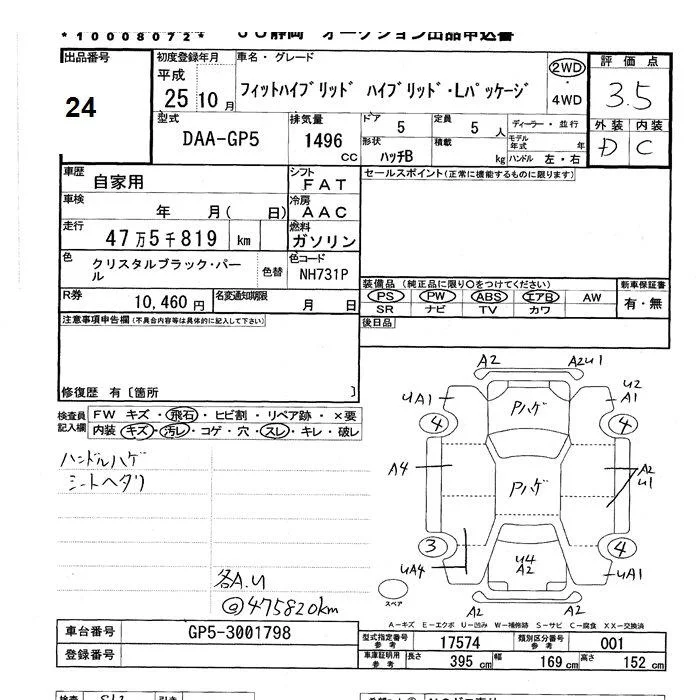 *10008072* JU静岡 オークション出品申込書
出品番号
24
初度登録年月
平成
25 10 月
車名・グレード
フィットハイブリッド ハイブリッド・Lパッケージ
2WD
・
4WD
評価点
3.5
外装 内装
D C
型式
DAA-GP5
排気量
1496
CC
ドア 5
形状
ハッチB
定員 5 人
積載 kg
ディーラー・並行
モデル
年式 年
ハンドル 左・右
車歴
自家用
シフト
FAT
車検 年 月( 日)
冷房
AAC
走行
47万5千819 km
燃料
ガソリン
色
クリスタルブラック・パー
ル
色替
色コード
NH731P
R券
10,460円
名変通知期限
月 日
セールスポイント(正常に機能するものに限ります)
装備品 (純正品に限り○をつけてください)
PS PW ABS エアB AW
SR ナビ TV カワ
新車保証書
有・無
後日品
注意事項申告欄(不具合内容等は具体的に記入して下さい)
修復歴 有〔箇所 〕
検査員
記入欄
FW キズ・飛石・ヒビ割・リペア跡・×要
内装 キズ・汚レ・コゲ・穴・スレ・キレ・破レ
ハンドルハゲ
シートヘタリ
各A.U
@475820km
A2
A2U1
UA1
U2
A1
4
4
Pハゲ
A4
Pハゲ
A2
U1
3
4
UA4
U4
A2
UA1
A2
A2
スペア
A-キズ E-エクボ U-凹み W-補修跡 S-サビ C-腐食 XX-交換済
車台番号
GP5-3001798
登録番号
型式指定番号
参考
17574
類別区分番号
参考
001
車庫証明用
参考
長さ 395 cm
幅 169 cm
高さ 152 cm